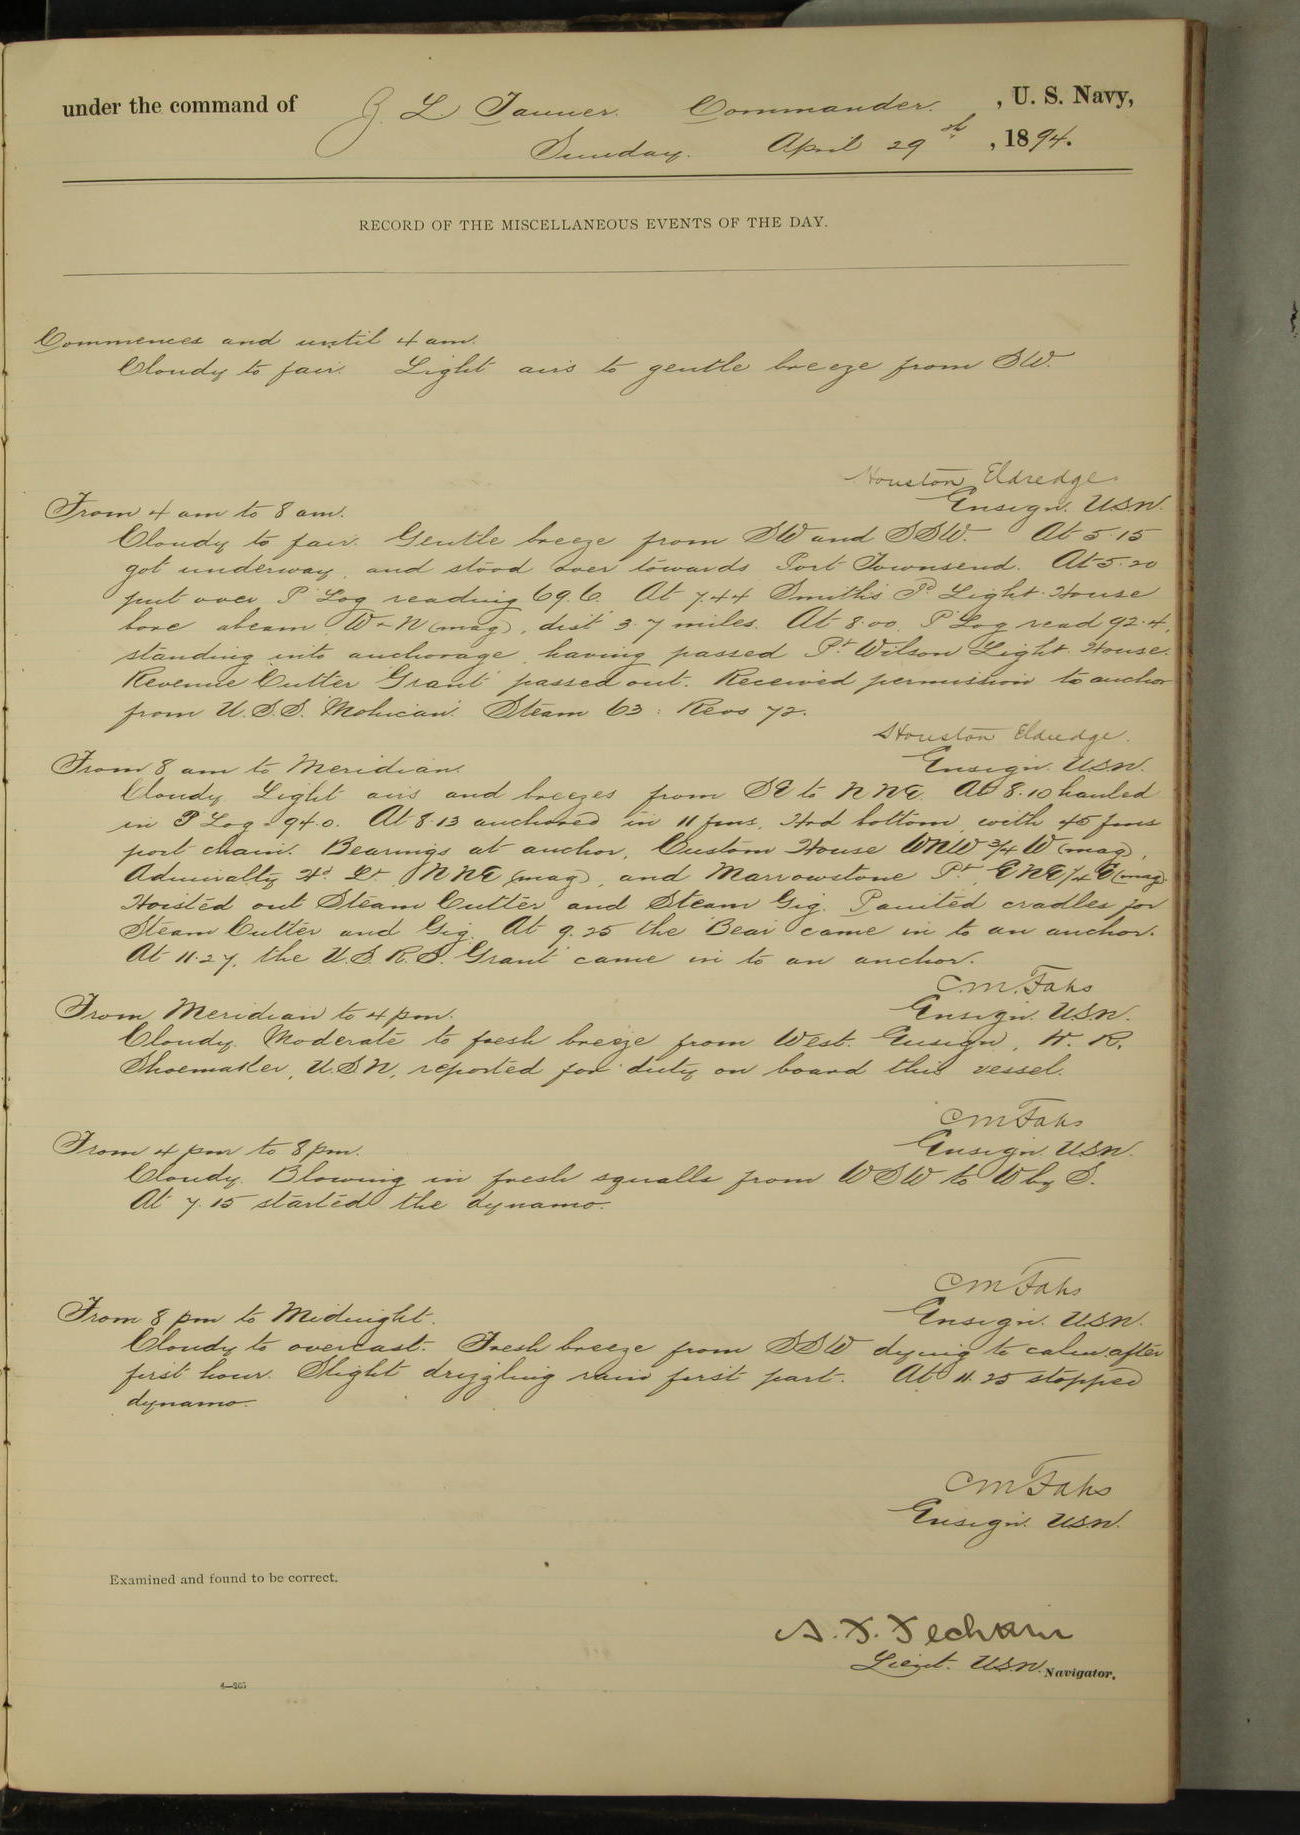 under the command of Z L Tanner. Commander. , U. S. Navy,
Sunday. April 29th , 1894.
RECORD OF THE MISCELLANEOUS EVENTS OF THE DAY.
Commences and until 4 am.
Cloudy to fair. Light airs to gentle breeze from SW.
Houston Eldredge.
Ensign. USN.
From 4 am to 8 am.
Cloudy to fair. Gentle breeze from SW and SSW. At 5.15
got underway, and stood over towards Port Townsend. At 5.20
put over P Log reading 69.6. At 7.44 Smith's Light House
bore abeam W N (mag), dist 3.7 miles. At 8.00 P Log read 92.4,
standing into anchorage, having passed Pt Wilson Light House.
Revenue Cutter Grant passed out. Received permission to anchor
from U.S.S. Mohican. Steam 63: Revs 72.
Houston Eldredge.
Ensign. USN.
From 8 am to Meridian.
Cloudy. Light airs and breezes from SE to NNE. At 8.10 hauled
in P Log 94.0. At 8.13 anchored in 11 fms, Hrd bottom, with 45 fms
port chain. Bearings at anchor, Custom House WNW 3/4 W (mag),
Admiralty Hd Lt, NNE (mag), and Marrowstone Pt, ENE 1/4 E (mag)
Hoisted out Steam Cutter and Steam Gig. Painted cradles for
Steam Cutter and Gig. At 9.25 the Bear came in to an anchor.
At 11.27, the U.S.R.S. Grant came in to an anchor.
C.M. Fahs
Ensign. USN.
From Meridian to 4 pm.
Cloudy. Moderate to fresh breeze from West. Ensign, H. R.
Shoemaker, U.S.N, reported for duty on board this vessel.
CM Fahs
Ensign. USN.
From 4 pm to 8 pm.
Cloudy. Blowing in fresh squalls from WSW to W by S.
At 7.15 started the dynamo.
CM Fahs
Ensign. USN.
From 8 pm to Midnight.
Cloudy to overcast. Fresh breeze from SSW dying to calm after
first hour. Slight drizzling rain first part. At 11.25 stopped
dynamo.
CM Fahs
Ensign. USN.
Examined and found to be correct.
Lieut. USN. Navigator.